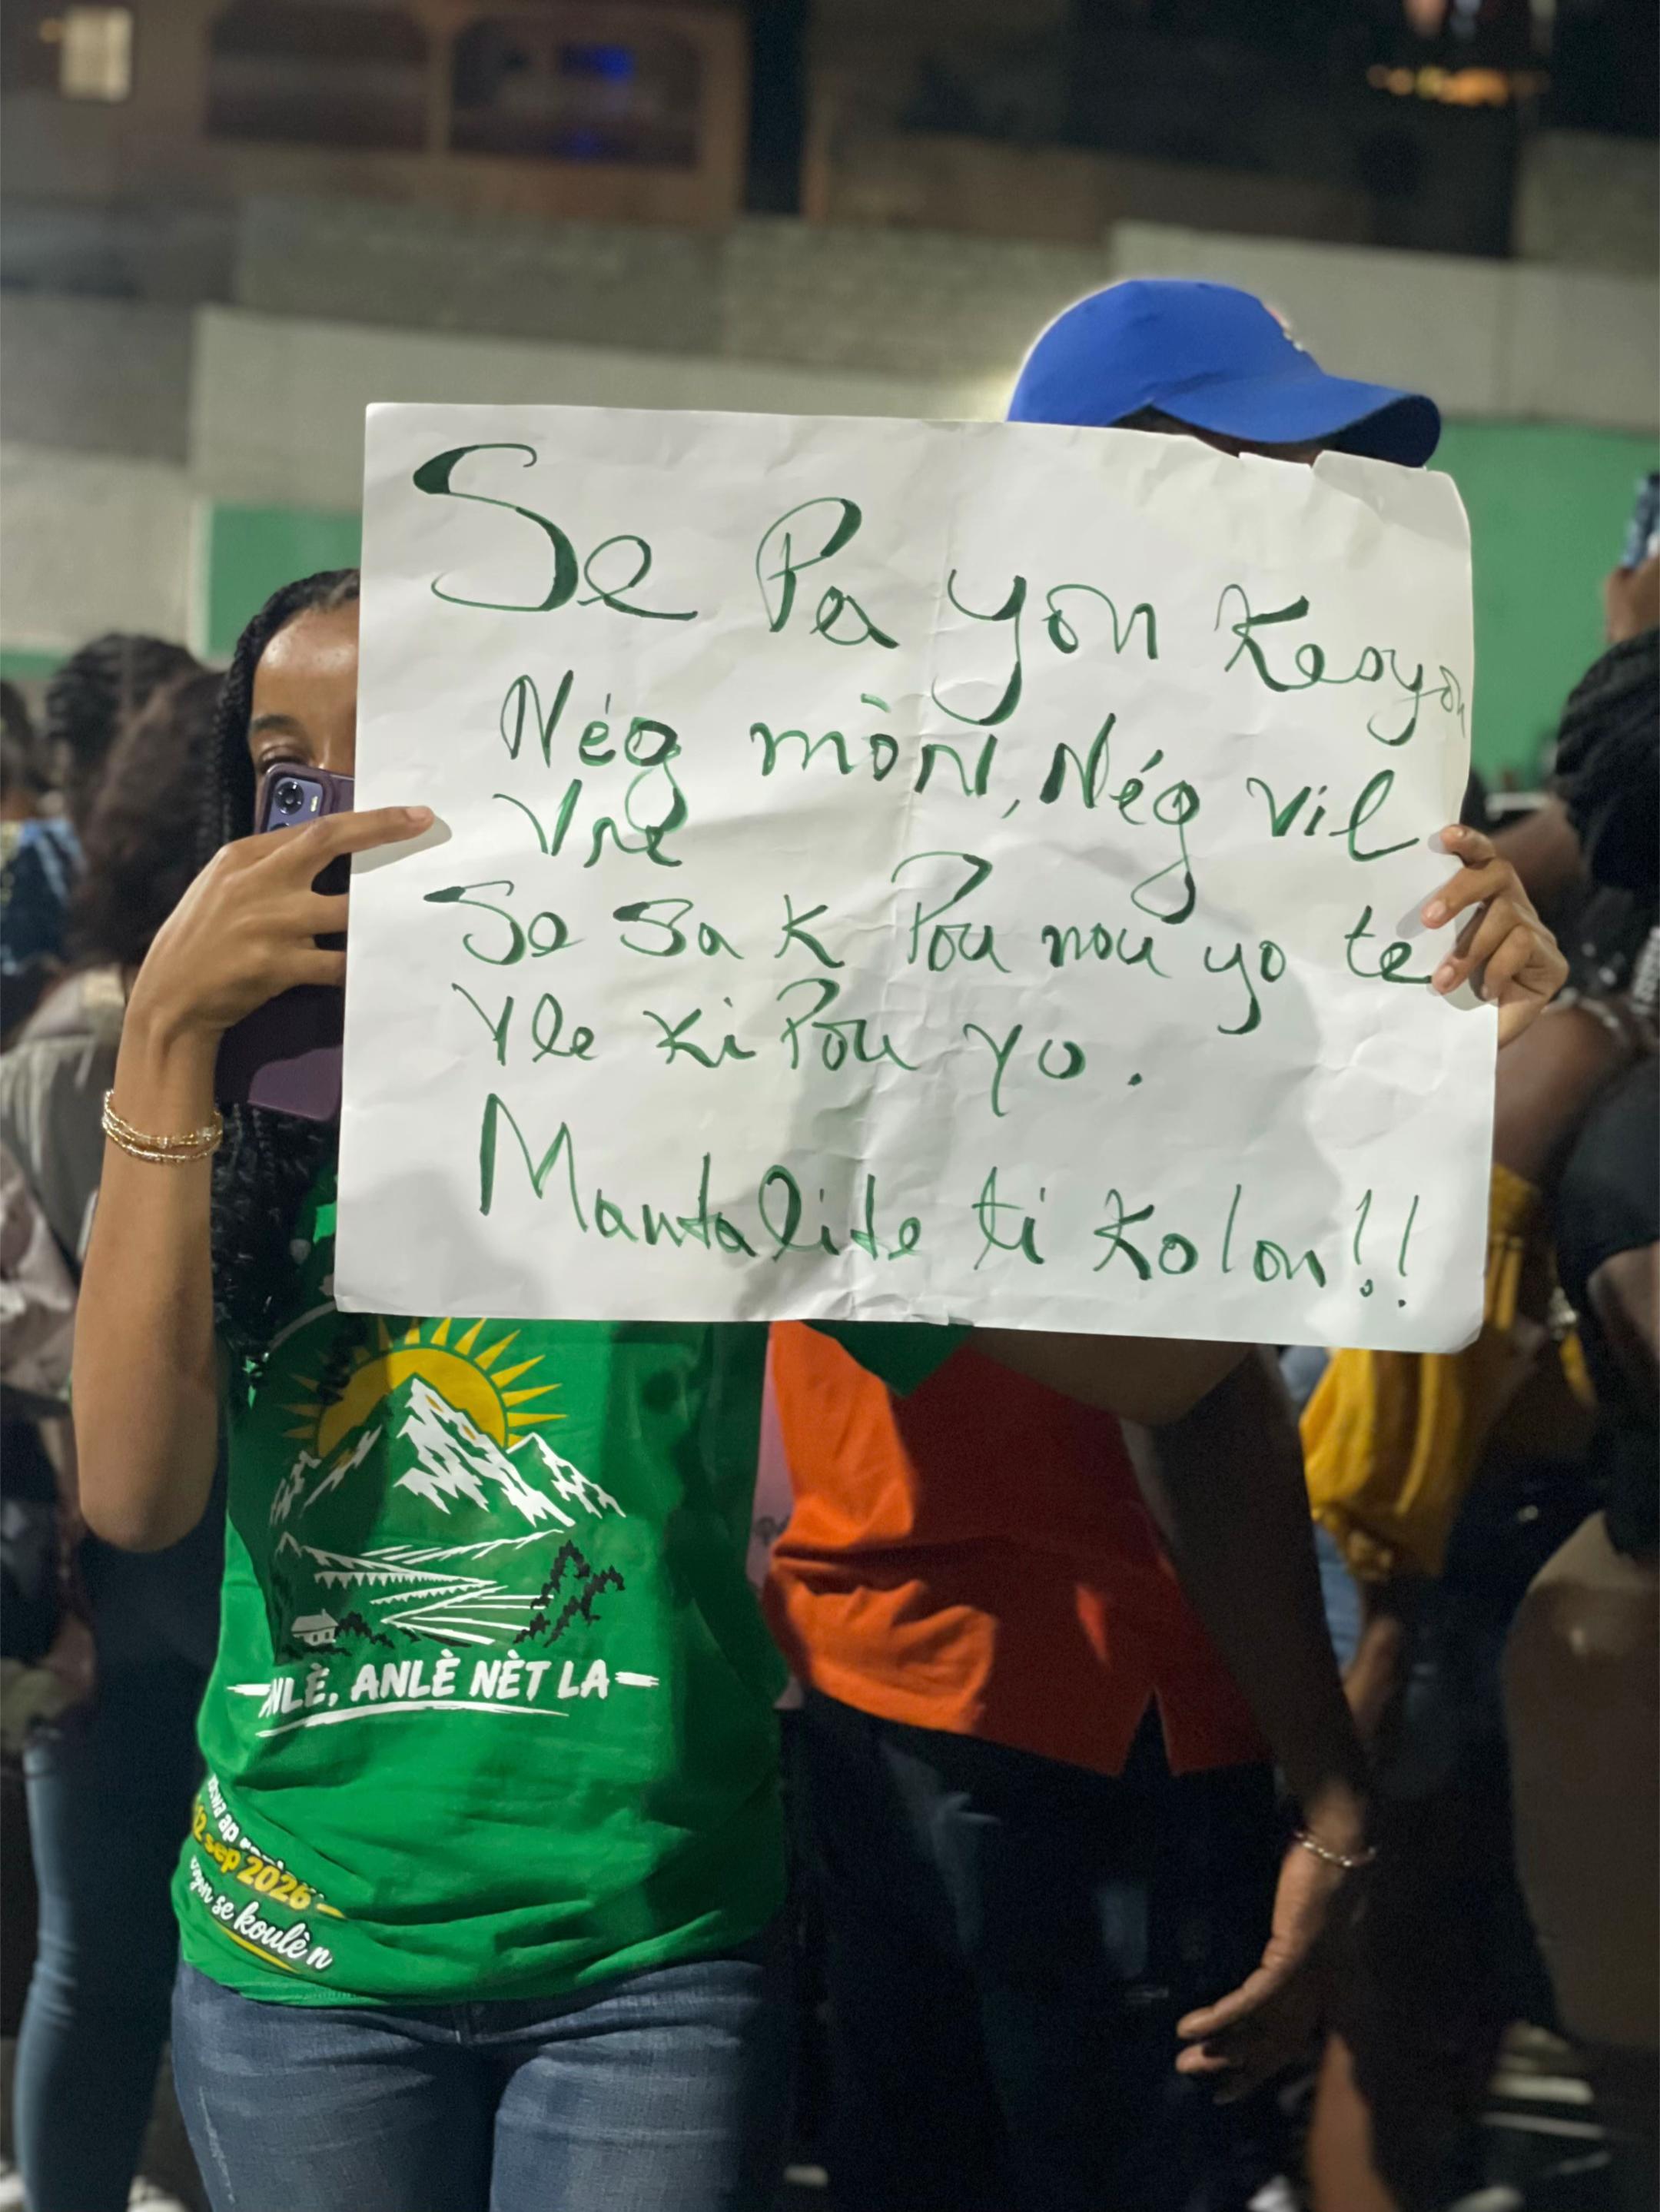 Se Pa yon Kesyon
Nég mòn, Nég vil
Vre
Se Sa K Pou nou yo te
Vle Ki Pou yo.
Mantalite ti Kolon!!
ANLÈ, ANLÈ NÈT LA
ap
12 sep 2026
se koulè n